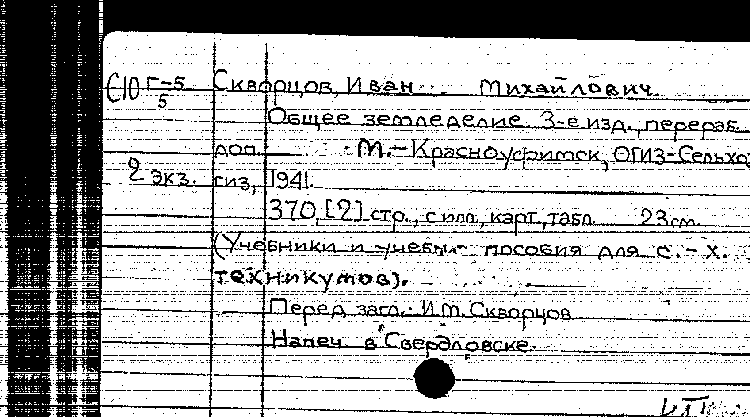 Е10 Г-5/5 Скворцов, Иван Михайлович.
Общее земледелие. 3-е изд., перераб.
доп. М.-Красноуфимск, ОГИЗ-Сельхо
2 экз. гиз, 1941.
370, [2] стр., с илл., карт., табл. 23 см.
(Учебники и учебн. пособия для с.-х.
техникумов).
Перед загл.: И.М. Скворцов
Напеч. в Свердловске.